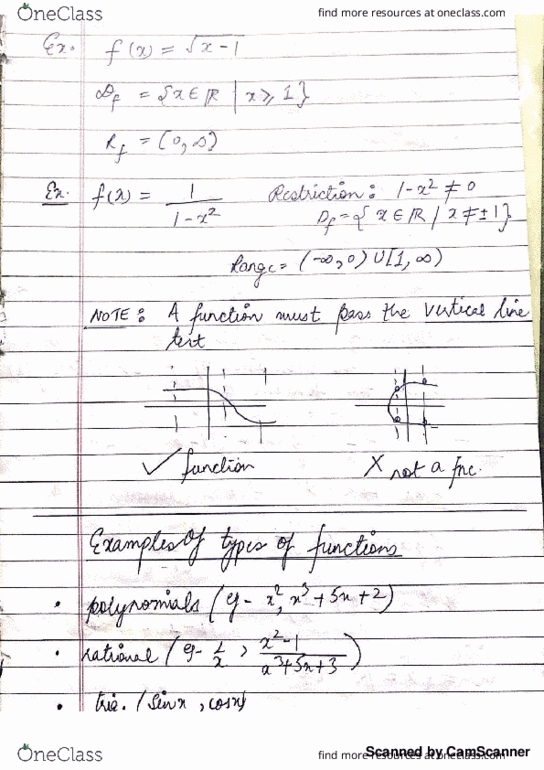 OneClass find more resources at oneclass.com
Ex. f(x) = √x-1
Df = {x ∈ ℝ | x ≥ 1}
Rf = (0, ∞)
Ex. f(x) = 1/(1-x²) Restriction : 1-x² ≠ 0
Df = { x ∈ ℝ | x ≠ ±1}
Range = (-∞, 0) ∪ [1, ∞)
NOTE : A function must pass the vertical line
test
✓ function X not a fnc.
Examples of types of functions
• polynomials (eg - x², x³ + 5x + 2)
• rational (eg - 1/x , (x²-1)/(x³+5x+3))
• trig. (sinx, cosx)
OneClass find more resources at oneclass.com
Scanned by CamScanner